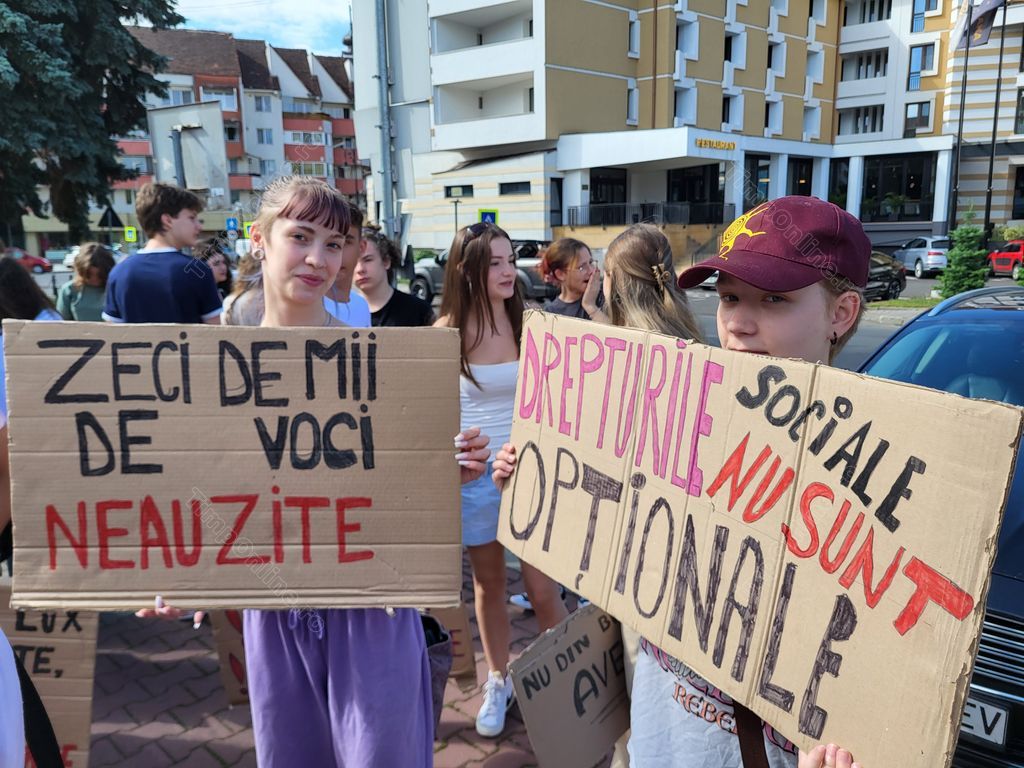 RESTAURANT
ZECI DE MII
DE VOCI
NEAUZITE
DREPTURILE SOCIALE
NU SUNT
OPȚIONALE
LUX
TE,
NU DIN
AVE
REBE
EV
Timponline.ro